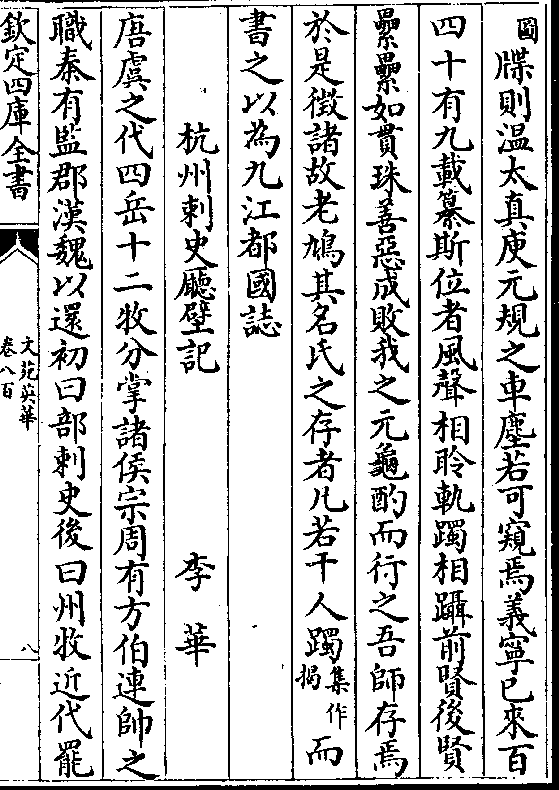 圖牒則温太真庾元規之車塵若可窺焉義寧已來百
四十有九載纂斯位者風聲相聆軌躅相躡前賢後賢
纍纍如貫珠善惡成敗我之元龜酌而行之吾師存焉
於是徵諸故老鳩其名氏之存者凡若干人躅集作揭而
書之以為九江都國誌
杭州刺史廳壁記 李華
唐虞之代四岳十二牧分掌諸侯宗周有方伯連帥之
職秦有監郡漢魏以還初曰部刺史後曰州牧近代罷
欽定四庫全書
文苑英華
卷八百
八